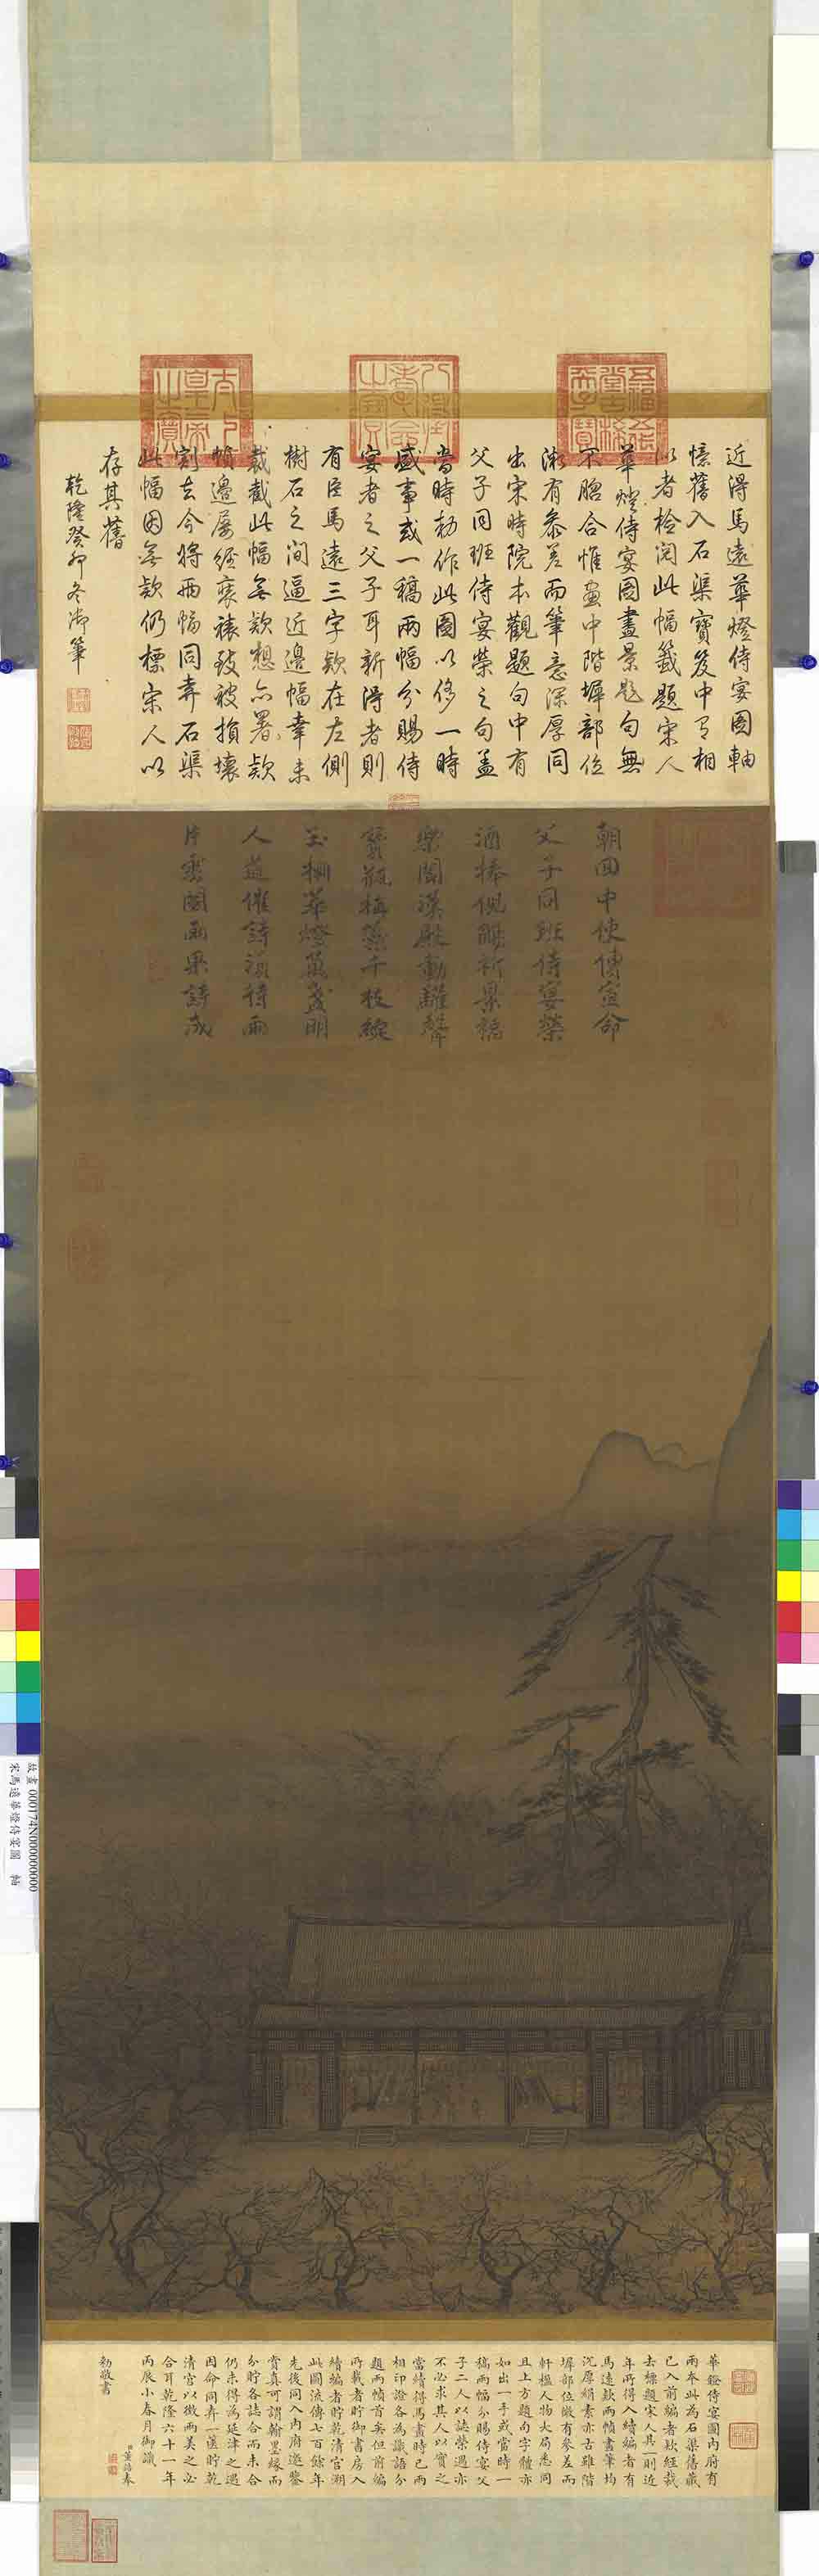 近得馬遠華燈侍宴圖軸
憶舊入石渠寶笈中有相
似者檢閱此幅籤題宋人
華燈侍宴圖畫景題句無
不脗合惟畫中階墀部位
微有參差而筆意深厚同
出宋時院本觀題句中有
父子同班侍宴榮之句蓋
當時勅作此圖以侈一時
盛事或一稿兩幅分賜侍
宴者之父子耳新得者則
有臣馬遠三字款在左側
樹石之間逼近邊幅幸未
裁截此幅無款想亦署款
幀邊屢經裝裱致被損壞
割去今將兩幅同弆石渠
此幅因無款仍標宋人以
存其舊
乾隆癸卯冬御筆
五福五代堂古稀天子寶
八徵耄念之寶
太上皇帝之寶
朝回中使傳宣命
父子同班侍宴榮
酒捧倪觴祈景福
樂聞漢殿動驩聲
寶瓶梅蘂千枝綻
玉柵華燈萬盞明
人道催詩須待雨
片雲閣雨果詩成
華鐙侍宴圖內府有
兩本此為石渠舊藏
已入前編者款經裁
去標題宋人其一則近
年所得入續編者有
馬遠款兩幀畫筆均
沉厚絹素亦古雖階
墀部位微有參差而
軒楹人物大局悉同
且上方題句字體亦
如出一手或當時一
稿兩幅分賜侍宴父
子二人以誌榮遇亦
不必求其人以實之
當續得馬畫時已兩
相印證各為識語分
題兩幀首矣但前編
所載者貯御書房入
續編者貯乾清宮溯
此圖流傳七百餘年
先後同入內府邀鑒
賞真可謂翰墨緣而
分貯各誌合而未合
仍未得為延津之遇
因命同弆一篋貯乾
清宮以徵兩美之必
合耳乾隆六十一年
丙辰小春月御識
臣董誥奉
勅敬書
故畫 000174N000000000
宋馬遠華燈侍宴圖 軸